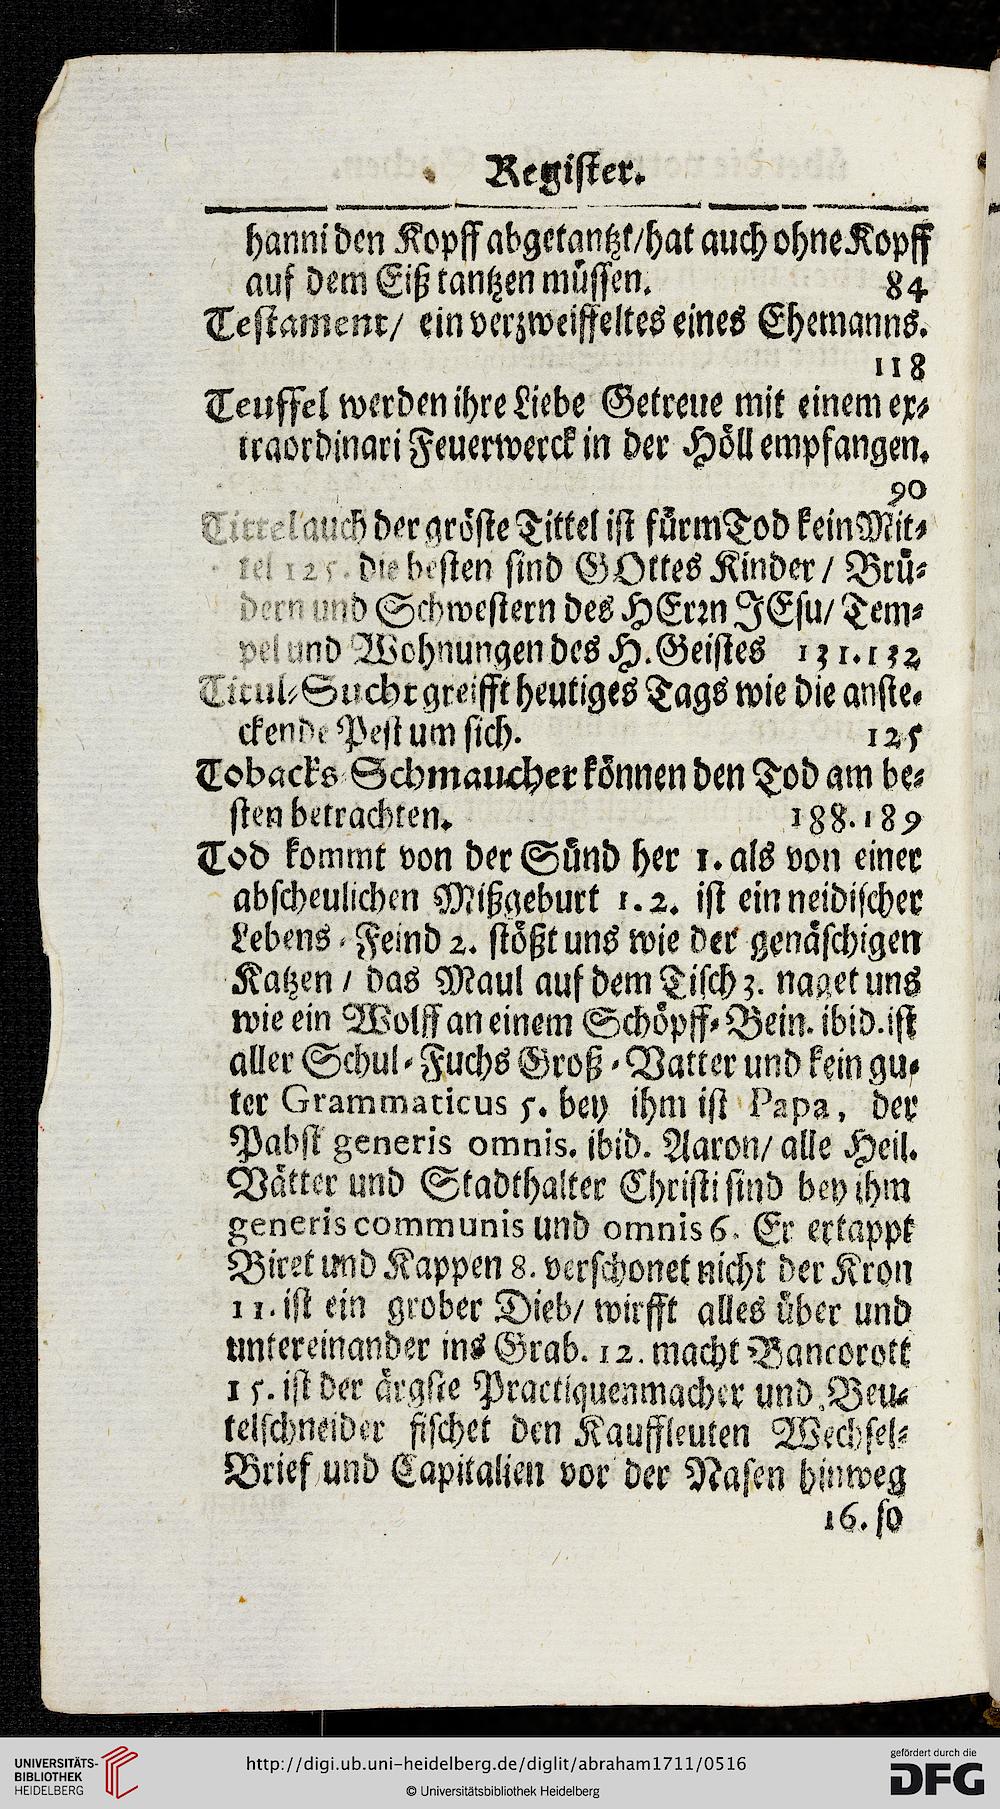 Register.
hanni den Kopff abgetantzt/hat auch ohne Kopff
auf dem Eiß tantzen müssen. 84
Testament/ ein verzweiffeltes eines Ehemanns.
118
Teuffel werden ihre Liebe Getreue mit einem ex-
traordinari Feuerwerck in der Höll empfangen.
90
Tittel auch der gröste Tittel ist fürm Tod kein Mit-
tel 125. die besten sind GOttes Kinder / Brü-
dern und Schwestern des HErrn JEsu/ Tem-
pel und Wohnungen des H. Geistes 131.132
Titul-Sucht greifft heutiges Tags wie die anste-
ckende Pest um sich. 125
Tobacks-Schmaucher können den Tod am be-
sten betrachten. 188.189
Tod kommt von der Sünd her 1. als von einer
abscheulichen Mißgeburt 1.2. ist ein neidischer
Lebens-Feind 2. stößt uns wie der genäschigen
Katzen / das Maul auf dem Tisch 3. naget uns
wie ein Wolff an einem Schöpff-Bein. ibid. ist
aller Schul-Fuchs Groß-Vatter und kein gu-
ter Grammaticus 5. bey ihm ist Papa, der
Pabst generis omnis. ibid. Aaron/ alle Heil.
Vätter und Stadthalter Christi sind bey ihm
generis communis und omnis 6. Er ertappt
Biret und Kappen 8. verschonet nicht der Kron
11. ist ein grober Dieb/ wirfft alles über und
untereinander ins Grab. 12. macht Bancorott
15. ist der ärgste Practiquenmacher und Beu-
telschneider fischet den Kauffleuten Wechsel-
Brief und Capitalien vor der Nasen hinweg
16. so
UNIVERSITÄTS-
BIBLIOTHEK
HEIDELBERG
http://digi.ub.uni-heidelberg.de/diglit/abraham1711/0516
© Universitätsbibliothek Heidelberg
gefördert durch die
DFG